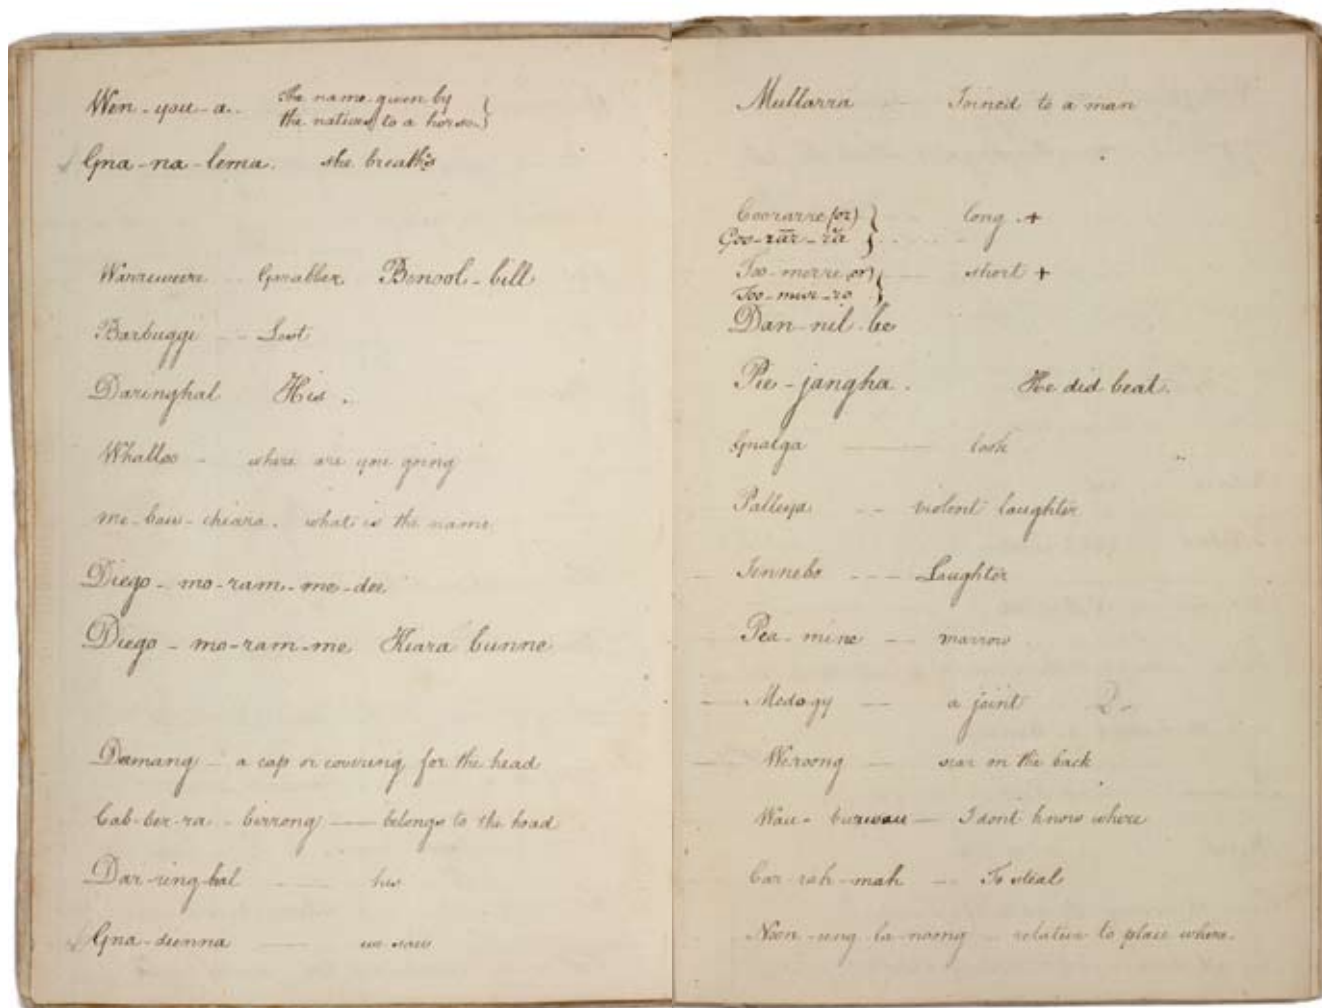 Wen-you-a. the name given by
the natives to a horse }
Gna-na-lema. she breaths
Warreweere Gnabber Benool-bill
Barbuggi -- Lost
Daringhal His.
Whalloo - where are you going
me-bau-chiara. what is the name
Diego-mo-ram-me-dee
Diego-mo-ram-me Kiara bunne
Damang - a cap or covering for the head
Cab-ber-ra-birrong — belongs to the head
Dar-ring-hal — his
Gna-dienna — we saw
Mullarra — Joined to a man
Coorarre (or) } long +
Goo-rar-ra }
Too-merre or } short +
Too-mur-ro }
Dan-nil-be
Pie-jangha. He did beat.
Gnalga — look
Palleya -- violent laughter
Jennebo --- Laughter
Pea-mine — marrow
Medogy — a joint
Weroong — scar on the back
Wau-burwau — I dont know where
Car-rah-mah -- To steal
Noon-ung-la-noong relative to place where.